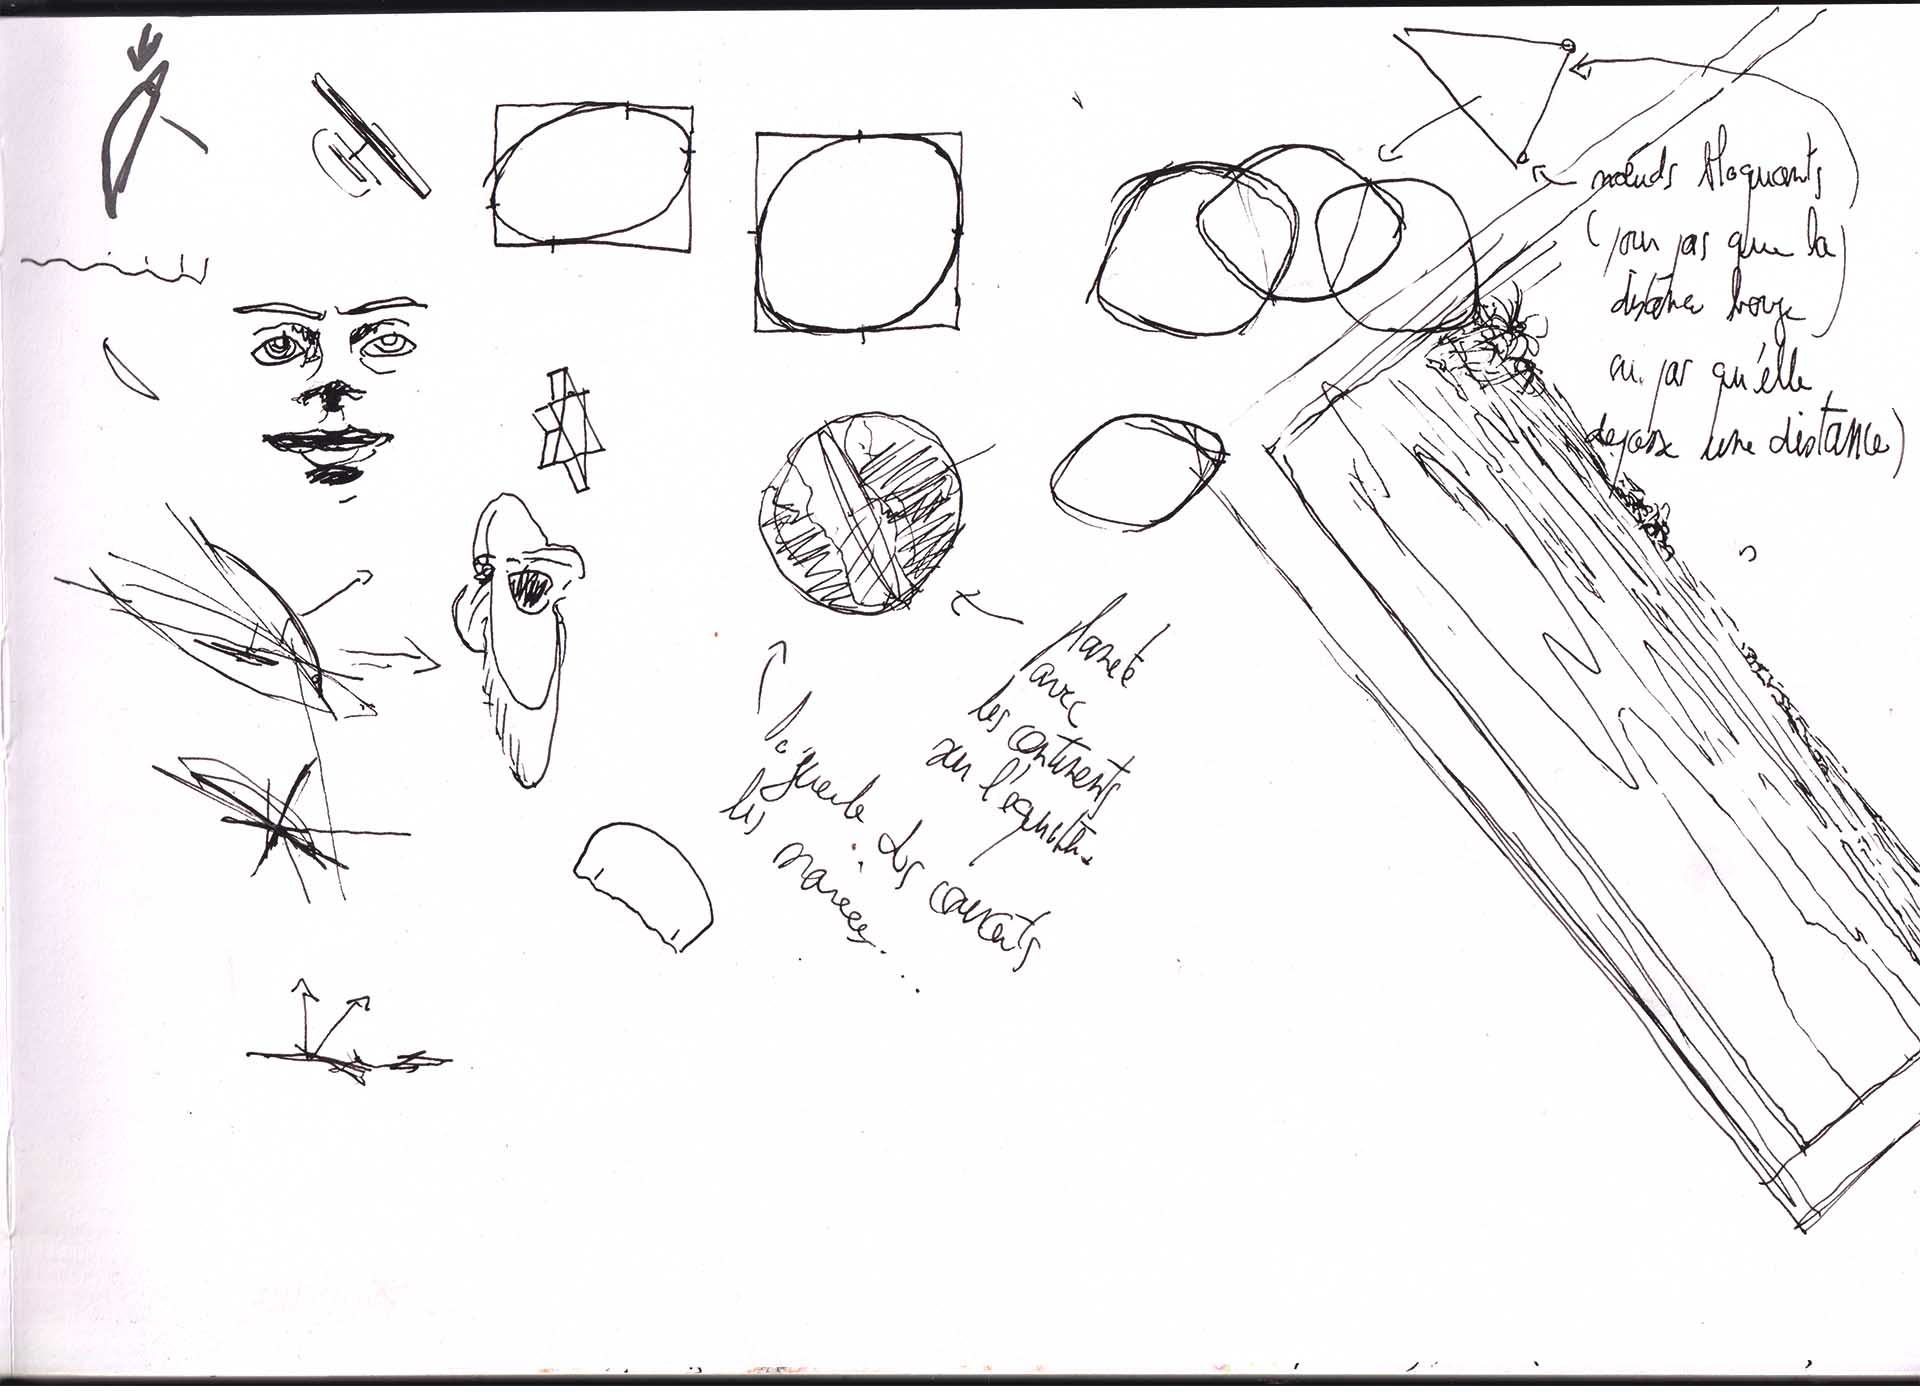 nœuds bloquants
(pour pas que la
distance bouge
ou pas qu'elle
dépasse une distance)
planète
avec
les continents
sur l'équateur
la gueule des courants
les marées...